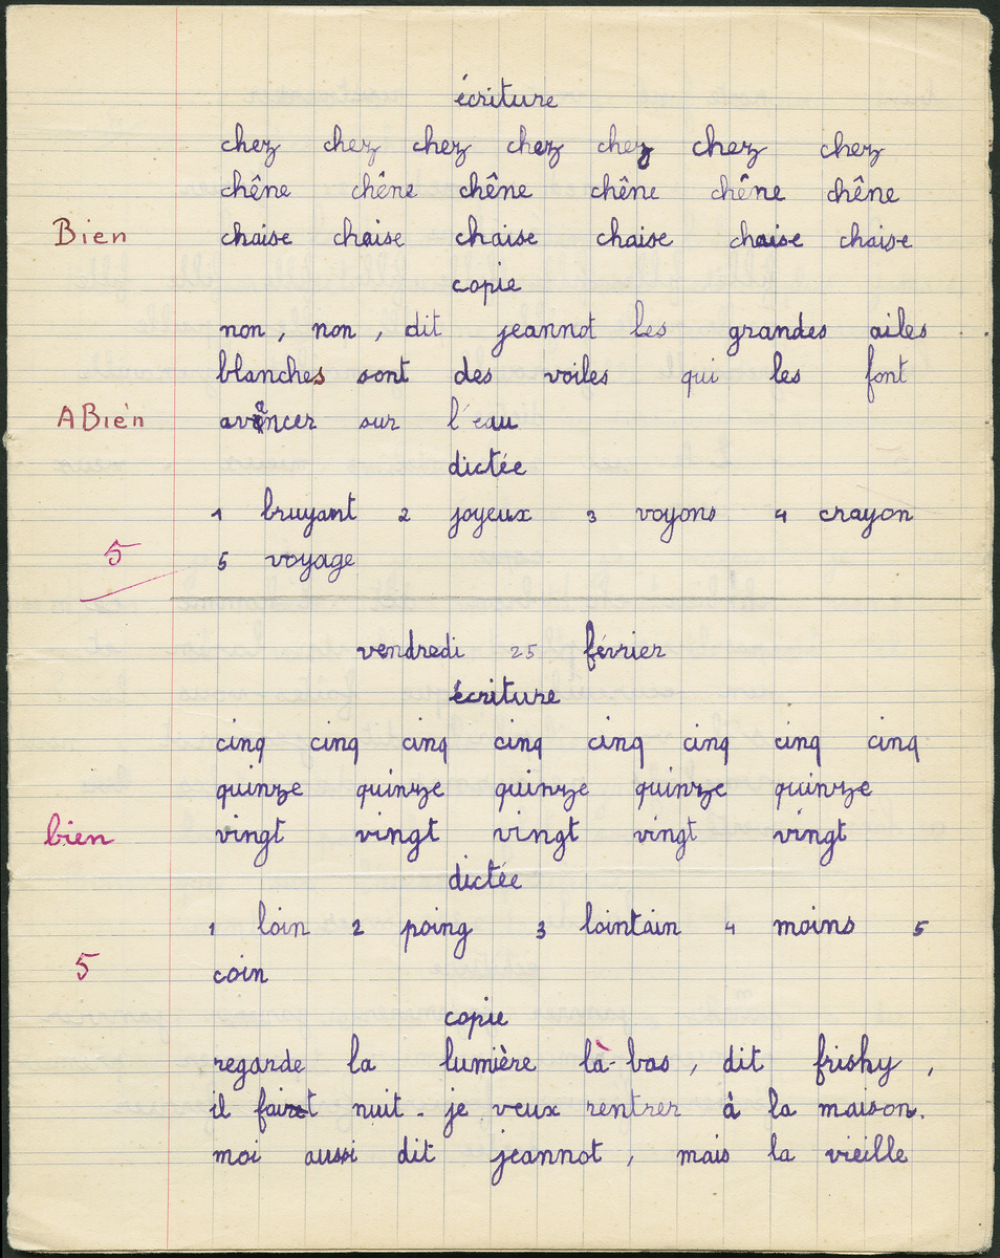 écriture
chez chez chez chez chez chez chez
chêne chêne chêne chêne chêne chêne
Bien chaise chaise chaise chaise chaise chaise
copie
non, non, dit jeannot les grandes ailes
blanches sont des voiles qui les font
ABien avancer sur l'eau
dictée
1 bruyant 2 joyeux 3 voyons 4 crayon
5 5 voyage
vendredi 25 février
écriture
cinq cinq cinq cinq cinq cinq cinq cinq
quinze quinze quinze quinze quinze
bien vingt vingt vingt vingt vingt
dictée
1 loin 2 poing 3 lointain 4 moins 5
5 coin
copie
regarde la lumière là-bas, dit frisky,
il fait nuit. je veux rentrer à la maison.
moi aussi dit jeannot, mais la vieille